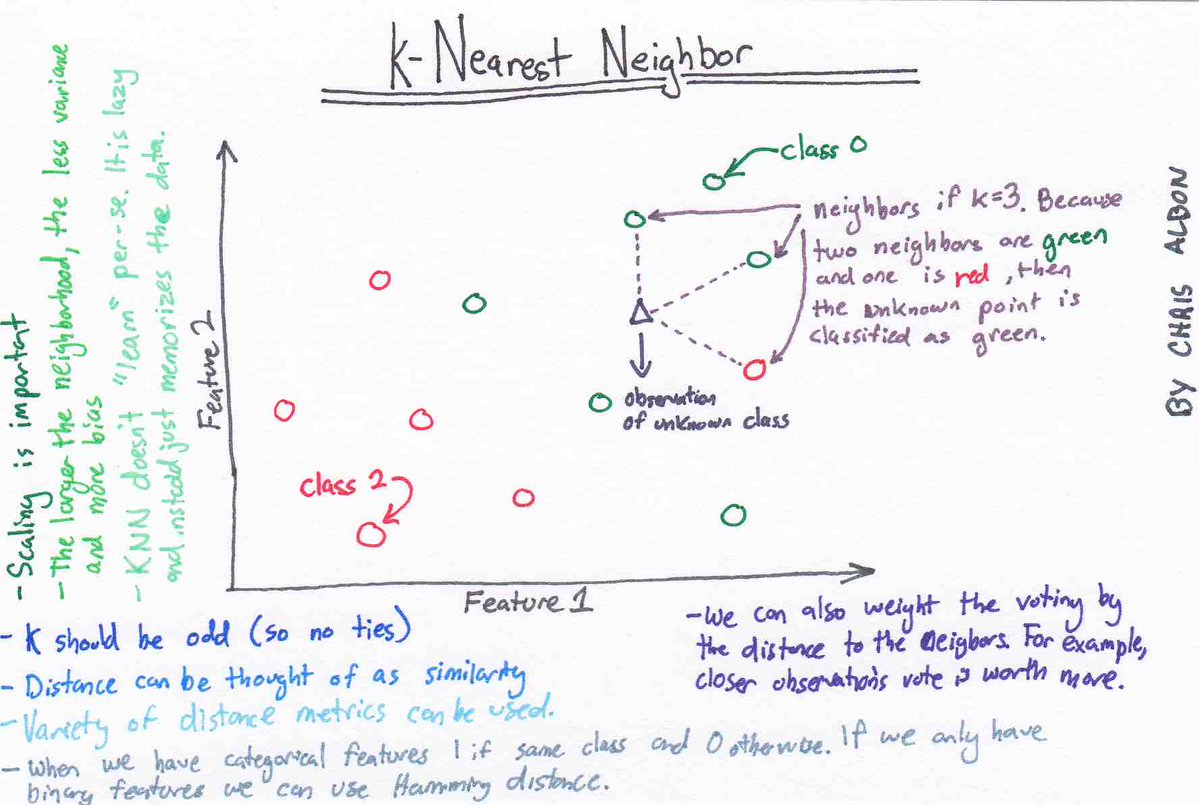 K-Nearest Neighbor
- Scaling is important
- The larger the neighborhood, the less variance
and more bias
- KNN doesn't "learn" per-se. It is lazy
and instead just memorizes the data.
Feature 2
class 0
neighbors if k=3. Because
two neighbors are green
and one is red, then
the unknown point is
classified as green.
observation
of unknown class
class 2
Feature 1
BY CHRIS ALBON
- K should be odd (so no ties)
- Distance can be thought of as similarity
- Variety of distance metrics can be used.
- When we have categorical features 1 if same class and 0 otherwise. If we only have
binary features we can use Hamming distance.
- We can also weight the voting by
the distance to the neigbors. For example,
closer observations vote is worth more.